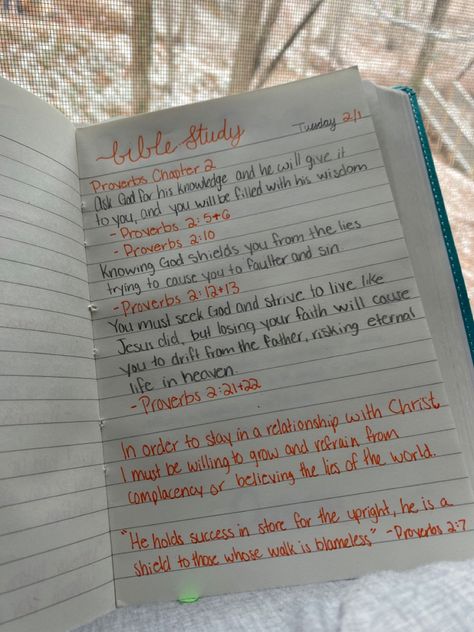 bible study
Tuesday 2/1
Proverbs Chapter 2
Ask God for his knowledge and he will give it
to you, and you will be filled with his wisdom
- Proverbs 2:5+6
- Proverbs 2:10
Knowing God shields you from the lies
trying to cause you to faulter and sin
- Proverbs 2:12+13
You must seek God and strive to live like
Jesus did, but losing your faith will cause
you to drift from the father, risking eternal
life in heaven.
- Proverbs 2:21+22
In order to stay in a relationship with Christ,
I must be willing to grow and refrain from
complacency or believing the lies of the world.
"He holds success in store for the upright, he is a
shield to those whose walk is blameless," - Proverbs 2:7